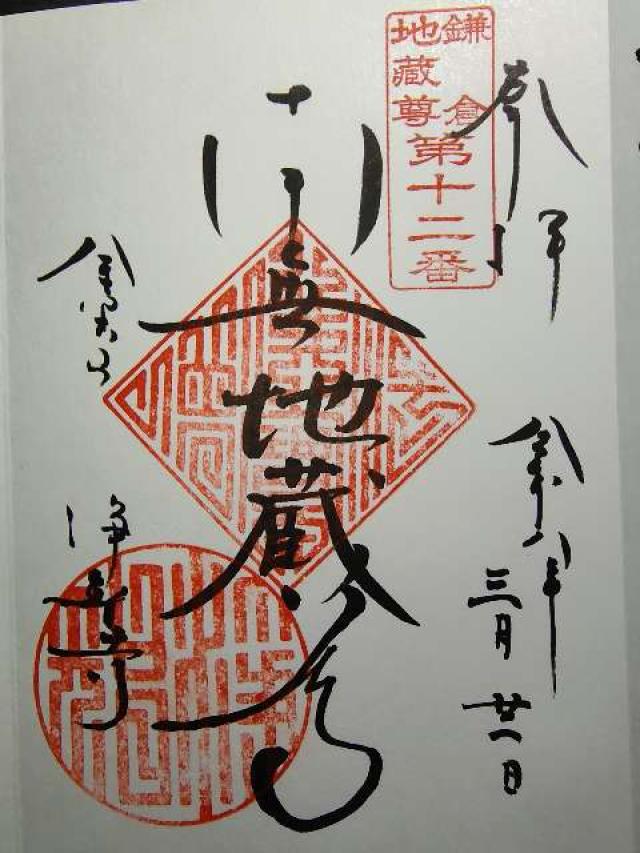 鎌倉
地蔵尊
第十二番
奉拝
令和八年
三月廿一日
南無地蔵尊
浄智寺